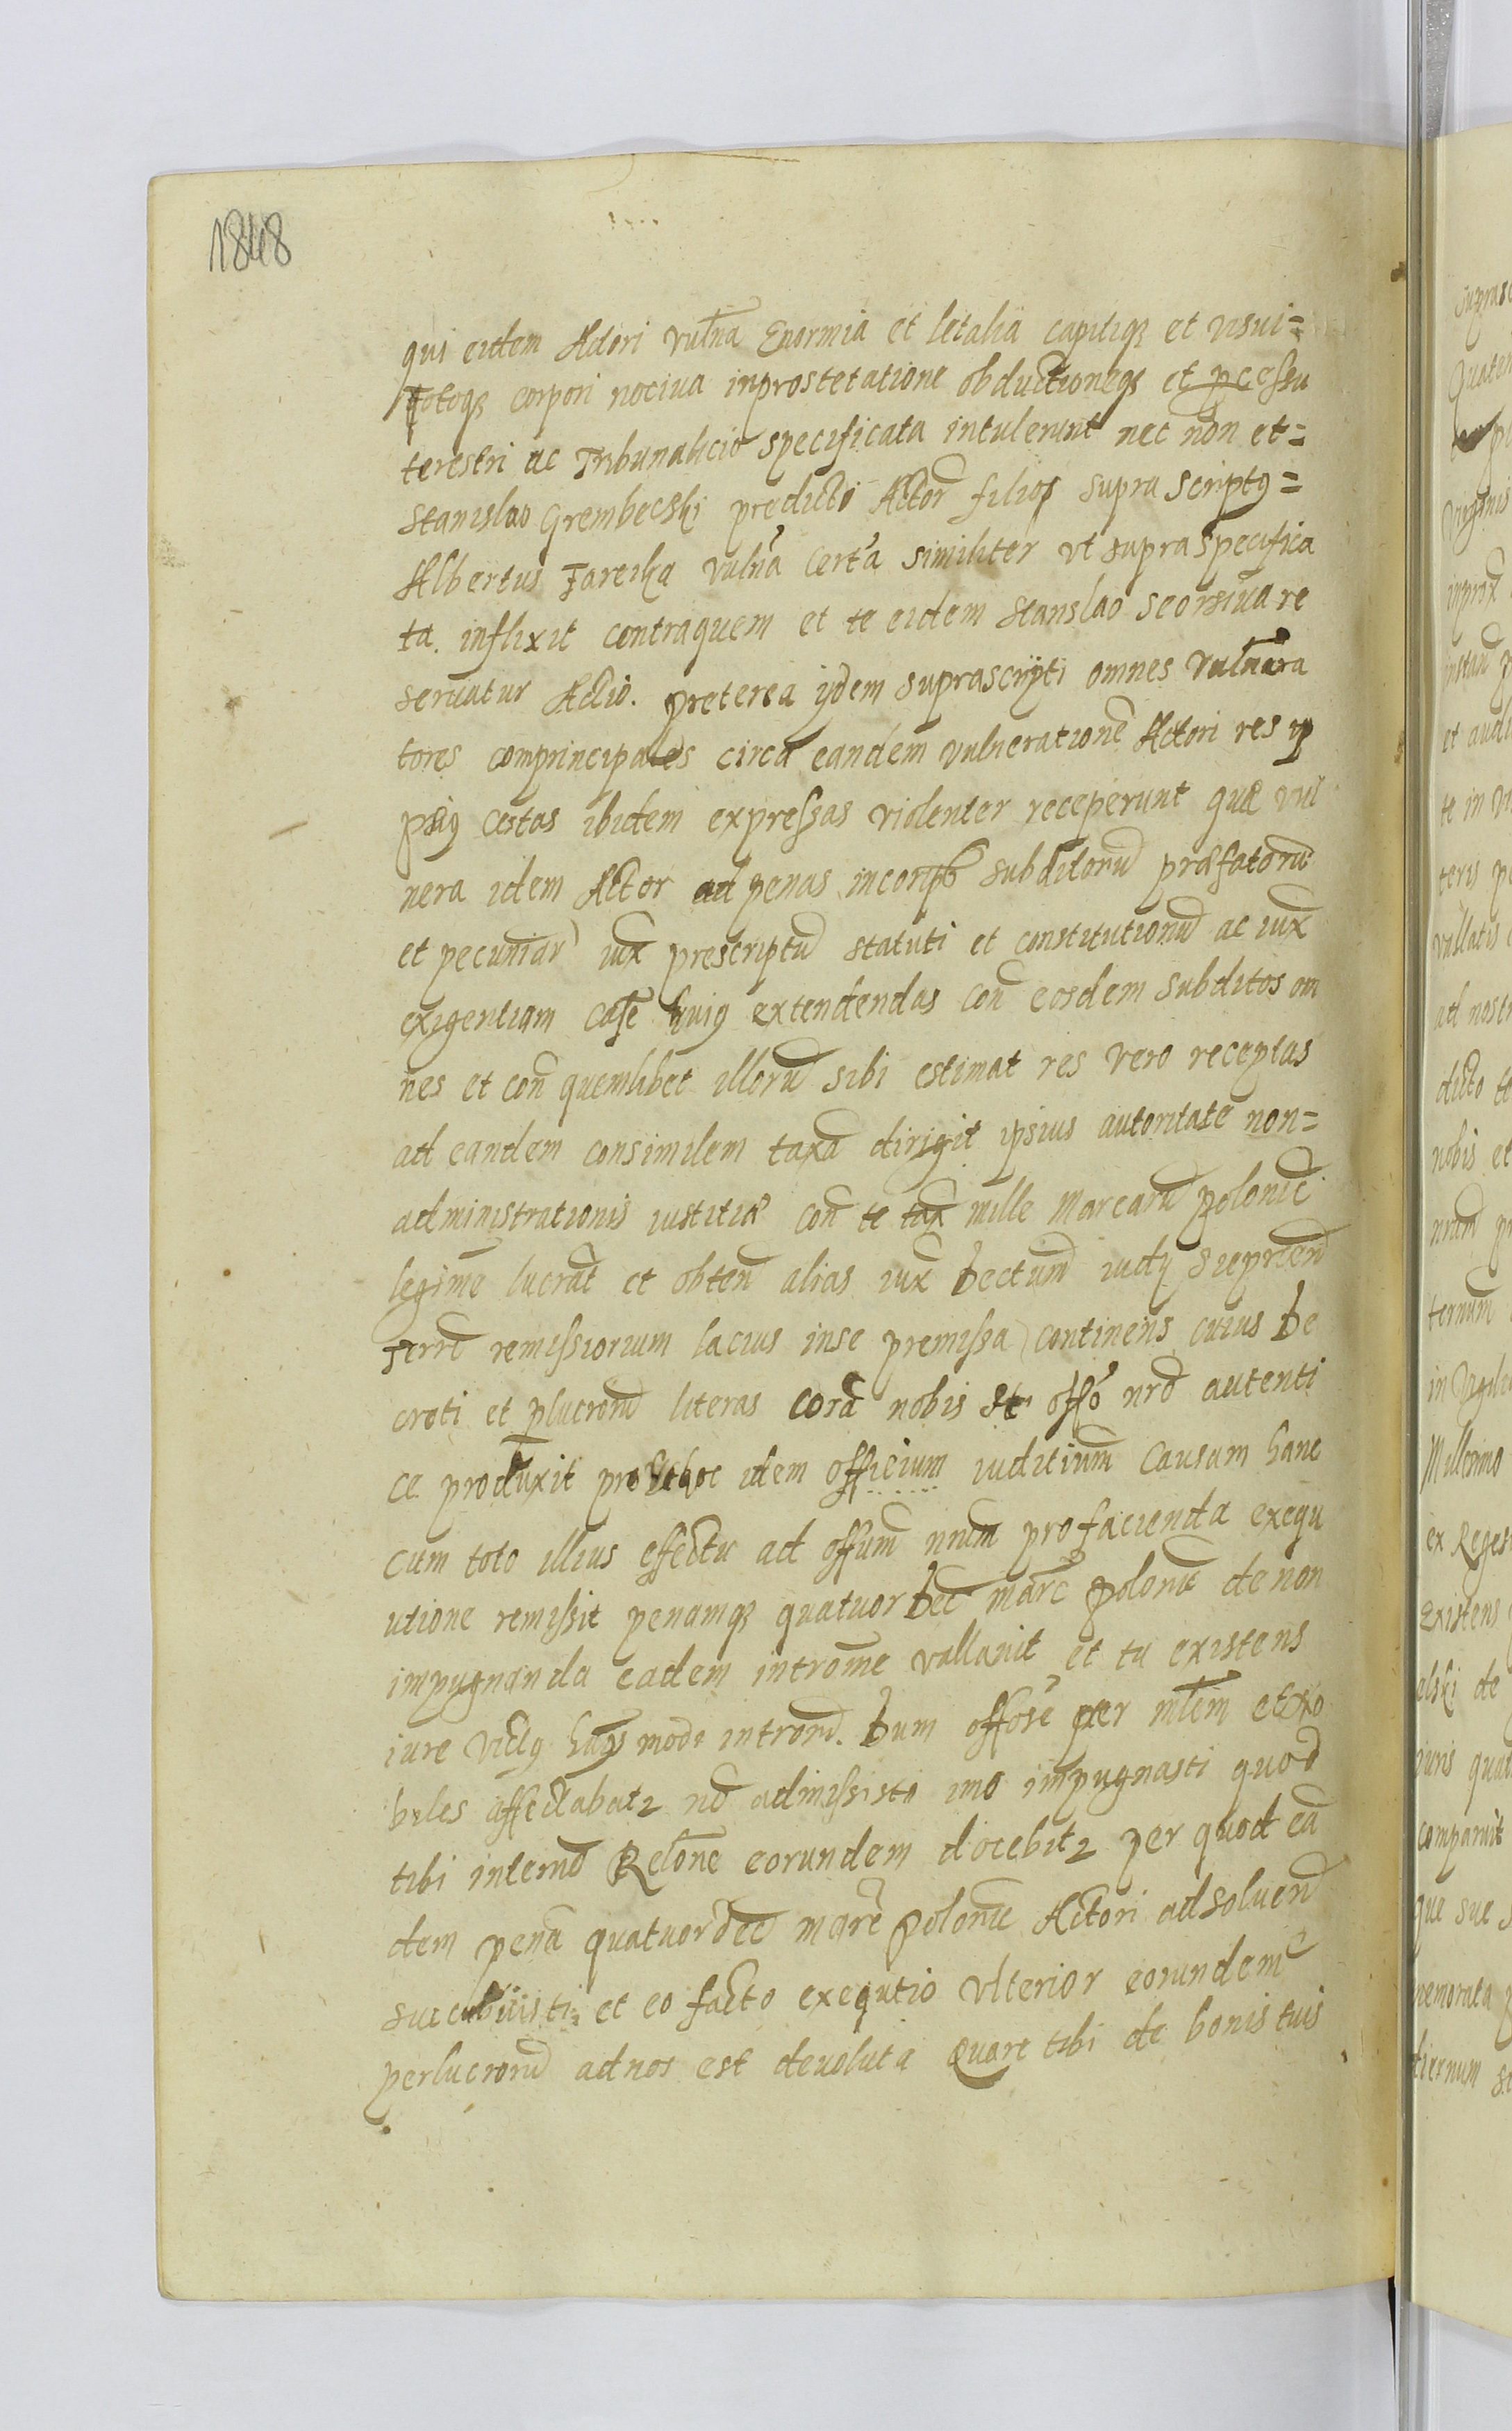 1848
qui eidem Actori vulna Enormia et letalia capitiqȝ et visui=
Totoqȝ corpori nociua inprostetatione obductioneqȝ et pcessu
terestri ac Tribunalicio specificata intulerunt nec non et=
Stanislao Grembecski predicti Actor filios supra scriptꝰ=
Albertus Fareika vulna certa similiter vt supra specifica
ta. inflixit contraquem et te eidem Stanslao seorsiua re
seruatur Actio. preterea ijdem suprascripti omnes vulnera
tores comprincipales circa eandem vulneratione Actori res ip
certas ibidem expressas violenter receperunt quæ vul
nera idem Actor ad penas subditorum præfatorum
et pecuniar iux prescriptum statuti et constitutionum ac iux
exigentiam case huiꝰ extendendas con eosdem subditos om
nes et con quemlibet illorum sibi estimat res vero receptas
ad eandem consimilem taxa dirigit ipsius autoritate non=
administrationis iustitiæ con te tax mille Marcarum polonic
legime lucrat et obten alias iux Dectum iudy
Terre remissiorium lacius inse premissa continens cuius De
creti et plucrorum literas cora nobis et offo nro autenti
ce produxit idem officium iuditium Causam hanc
cum toto illius effectu ad offum nrum pro facienda exequ
utione remissit penamqȝ quatuor Dec marc polonic de non
impugnanda eadem introme vallauit et tu existens
iure victꝰ modi intromd. Dum offose per mlem et no
biles affectabatz no admissisti imo impugnasti quod
tibi internd Relone eorundem docebitz per quod ea
dem pena quatuordec marc polonic Actori adsoluend
succubuisti; et eo facto exequtio vlterior eorundem
perlucrorum adnos est deuoluta Quare tibi de bonis tuis